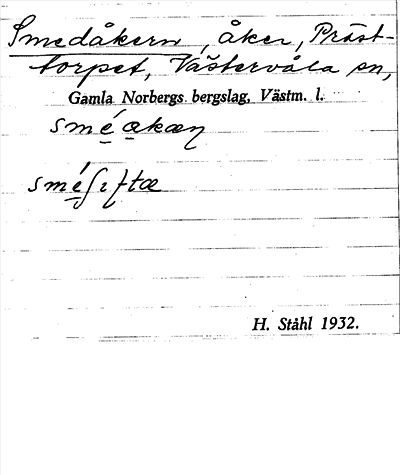 Smedåkern, åker, Präst-
torpet, Västervåla sn,
Gamla Norbergs bergslag, Västm. l.
H. Ståhl 1932.